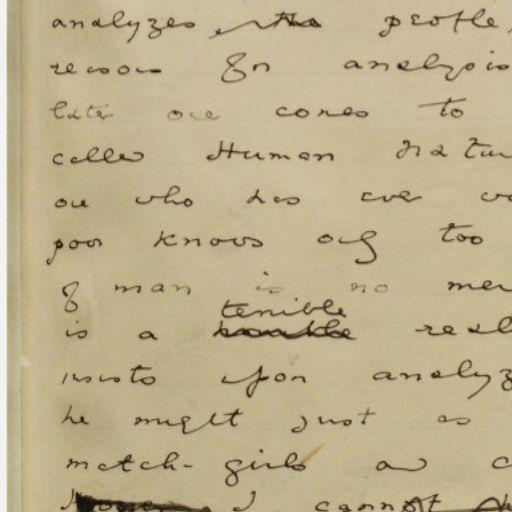 analyzes the people,
reasons for analysis
later one comes to
called Human Natu
one who has ever wo
poor knows only too
of man is no mer
terrible
is a horrible real
insists upon analyz
he might just as
match-girls and c
I cannot